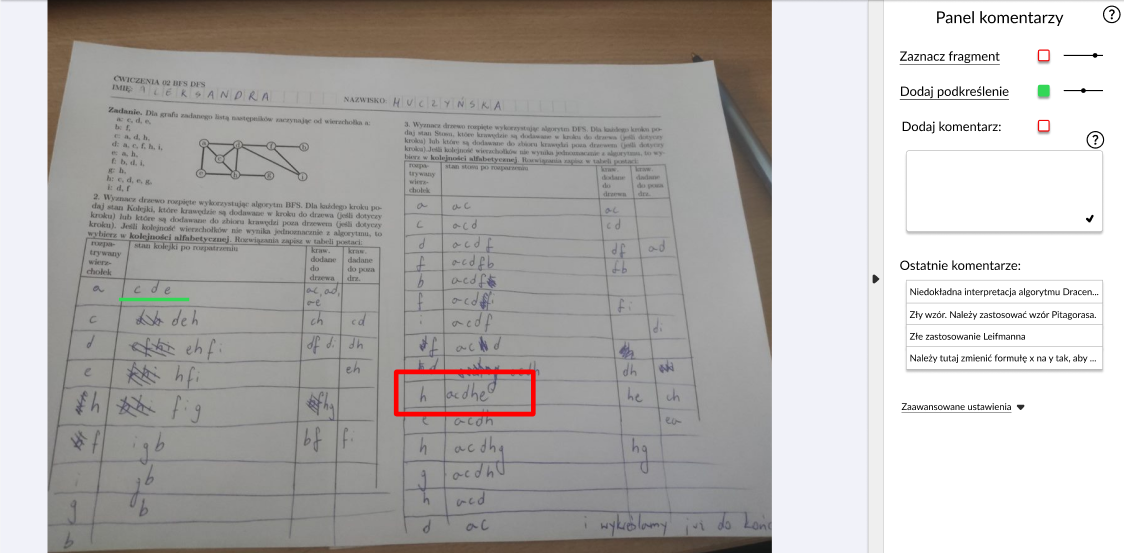 ĆWICZENIA 02 BFS DFS
IMIĘ: ALEKSANDRA NAZWISKO: HUCZYŃSKA
Zadanie. Dla grafu zadanego listą następników zaczynając od wierzchołka a:
a: c, d, e,
b: f,
c: a, d, h,
d: a, c, f, h, i,
e: a, h,
f: b, d, i,
g: h,
h: c, d, e, g,
i: d, f
2. Wyznacz drzewo rozpięte wykorzystując algorytm BFS. Dla każdego kroku po-
daj stan Kolejki, które krawędzie są dodawane w kroku do drzewa (jeśli dotyczy
kroku) lub które są dodawane do zbioru krawędzi poza drzewem (jeśli dotyczy
kroku). Jeśli kolejność wierzchołków nie wynika jednoznacznie z algorytmu, to
wybierz w kolejności alfabetycznej. Rozwiązania zapisz w tabeli postaci:
rozpa-
trywany
wierz-
chołek
stan kolejki po rozpatrzeniu
kraw.
dodane
do
drzewa
kraw.
dadane
do poza
drz.
a c d e ac, ad,
ae
c deh ch cd
d ehfi df di dh
e hfi eh
h fig hg
f igb bf fi
i gb
g b
b
3. Wyznacz drzewo rozpięte wykorzystując algorytm DFS. Dla każdego kroku po-
daj stan Stosu, które krawędzie są dodawane w kroku do drzewa (jeśli dotyczy
kroku) lub które są dodawane do zbioru krawędzi poza drzewem (jeśli dotyczy
kroku). Jeśli kolejność wierzchołków nie wynika jednoznacznie z algorytmu, to wy-
bierz w kolejności alfabetycznej. Rozwiązania zapisz w tabeli postaci:
rozpa-
trywany
wierz-
chołek
stan stosu po rozpatrzeniu
kraw.
dodane
do
drzewa
kraw.
dadane
do poza
drz.
a ac ac
c acd cd
d acdf df ad
f acdfb fb
b acdf
f acdfi fi
i acdf di
f acd
d acdh dh
h acdhe he ch
e acdh ea
h acdhg hg
g acdh
h acd
d ac i wykreślamy już do końca
Panel komentarzy
?
Zaznacz fragment
Dodaj podkreślenie
Dodaj komentarz:
?
Ostatnie komentarze:
Niedokładna interpretacja algorytmu Dracen...
Zły wzór. Należy zastosować wzór Pitagorasa.
Złe zastosowanie Leifmanna
Należy tutaj zmienić formułę x na y tak, aby ...
Zaawansowane ustawienia